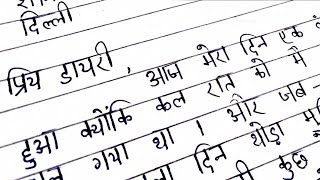 दिल्ली
प्रिय डायरी, आज मेरा दिन एक
हुआ क्योंकि कल रात को मैं
गया था। और जब -
दिन थोड़ा
कुछ